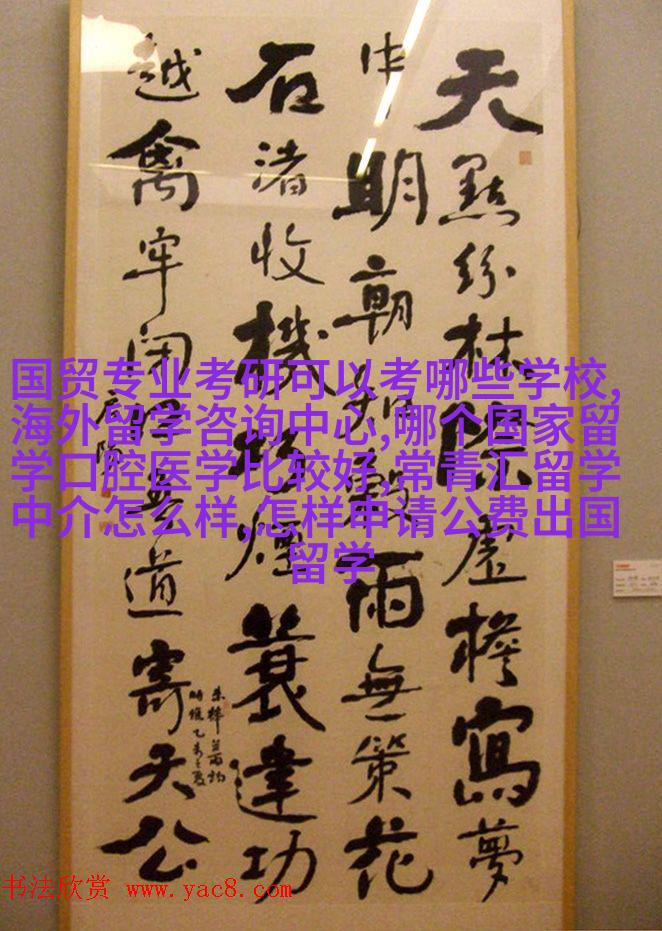 国贸专业考研可以考哪些学校,
海外留学咨询中心,哪个国家留
学口腔医学比较好,常青汇留学
中介怎么样,怎样申请公费出国
留学
天點紛林際虛檐寫夢
中明朝知穀雨無策花
石渚收機巧煙蓑建功
越禽牢閉口吾道寄天公
书法欣赏 www.yac8.com